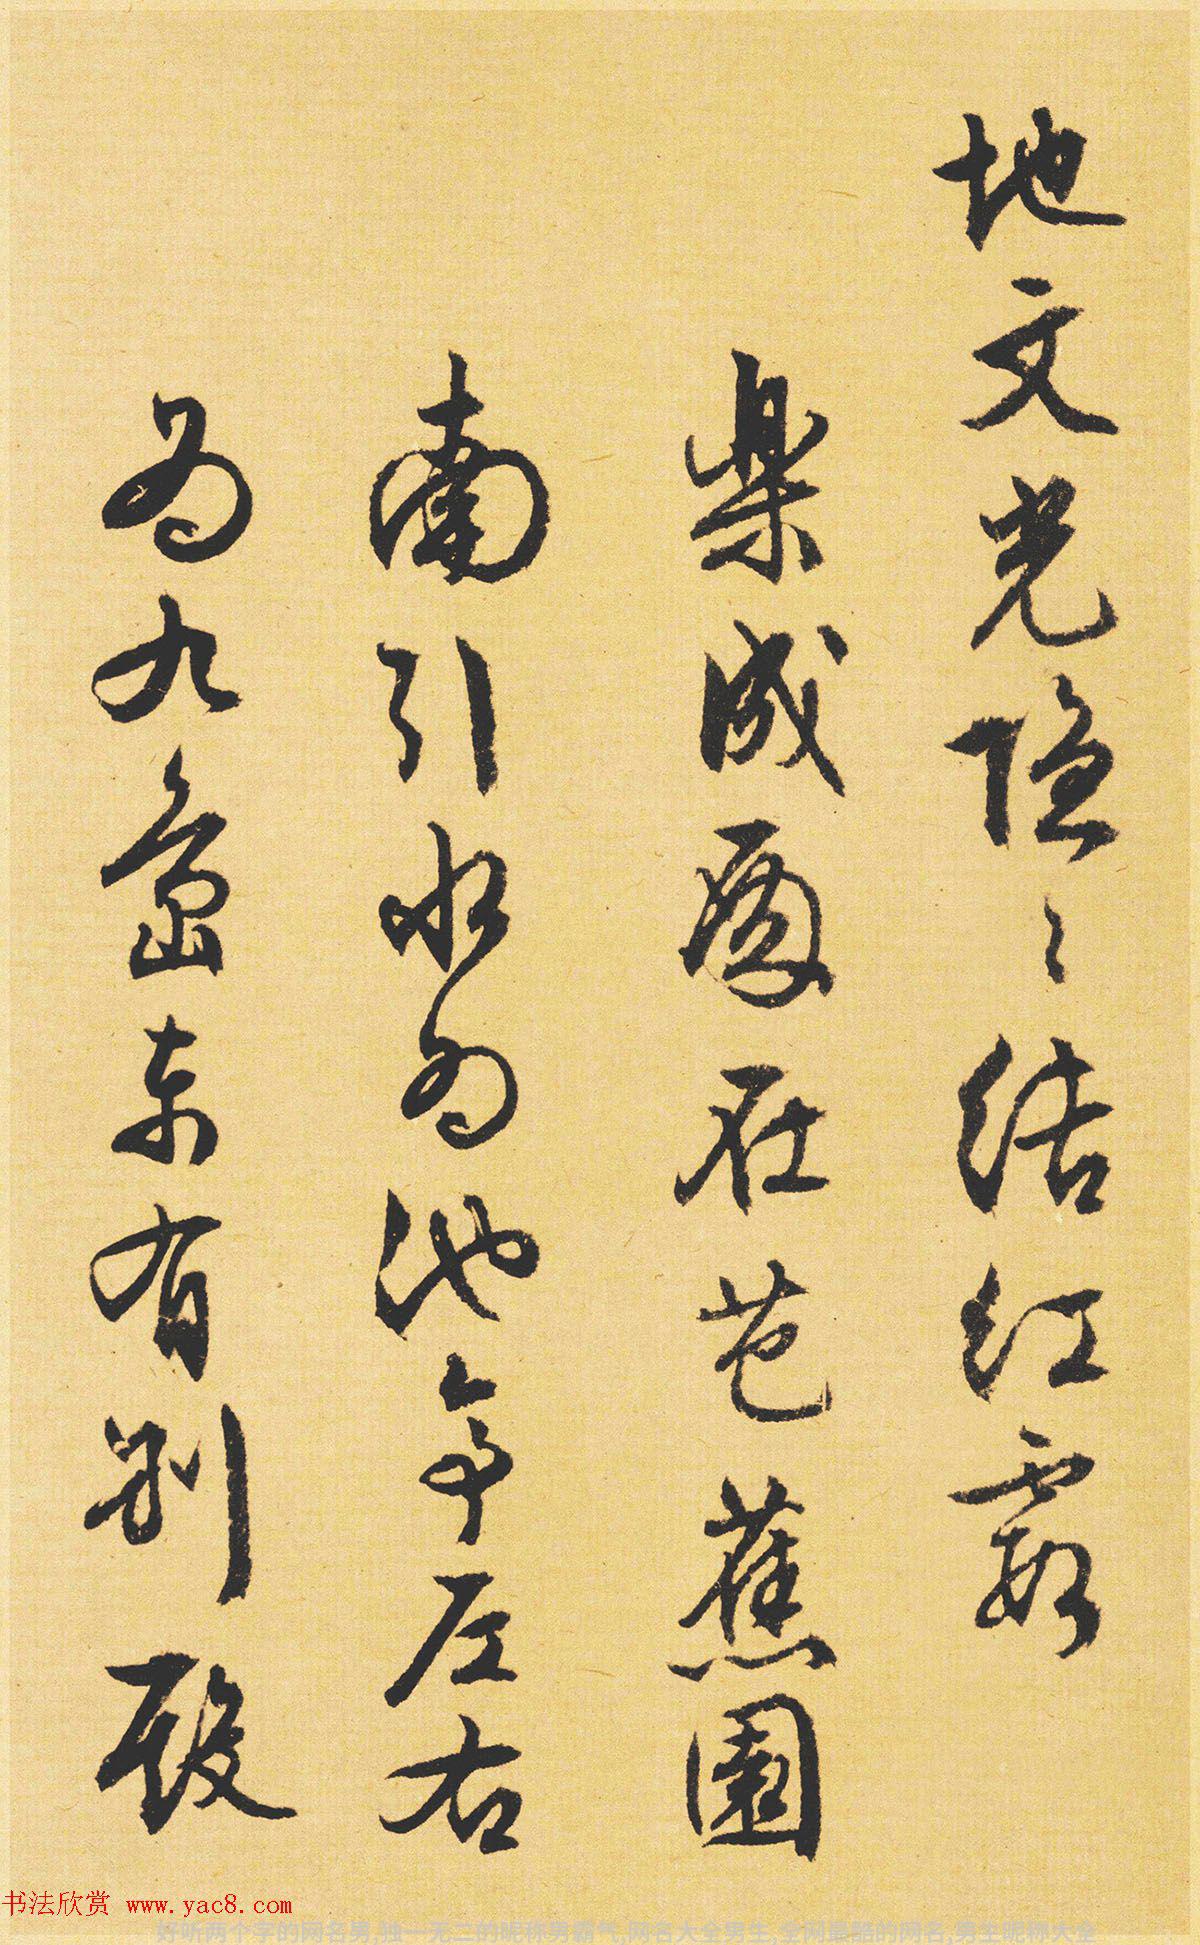 地文光隐〻结红霞
樂成殿在芭蕉園
南引水為池亭左右
為九島東有别殿
书法欣赏 www.yac8.com
好听两个字的网名男,独一无二的昵称男霸气,网名大全男生,全网最酷的网名,男生昵称大全